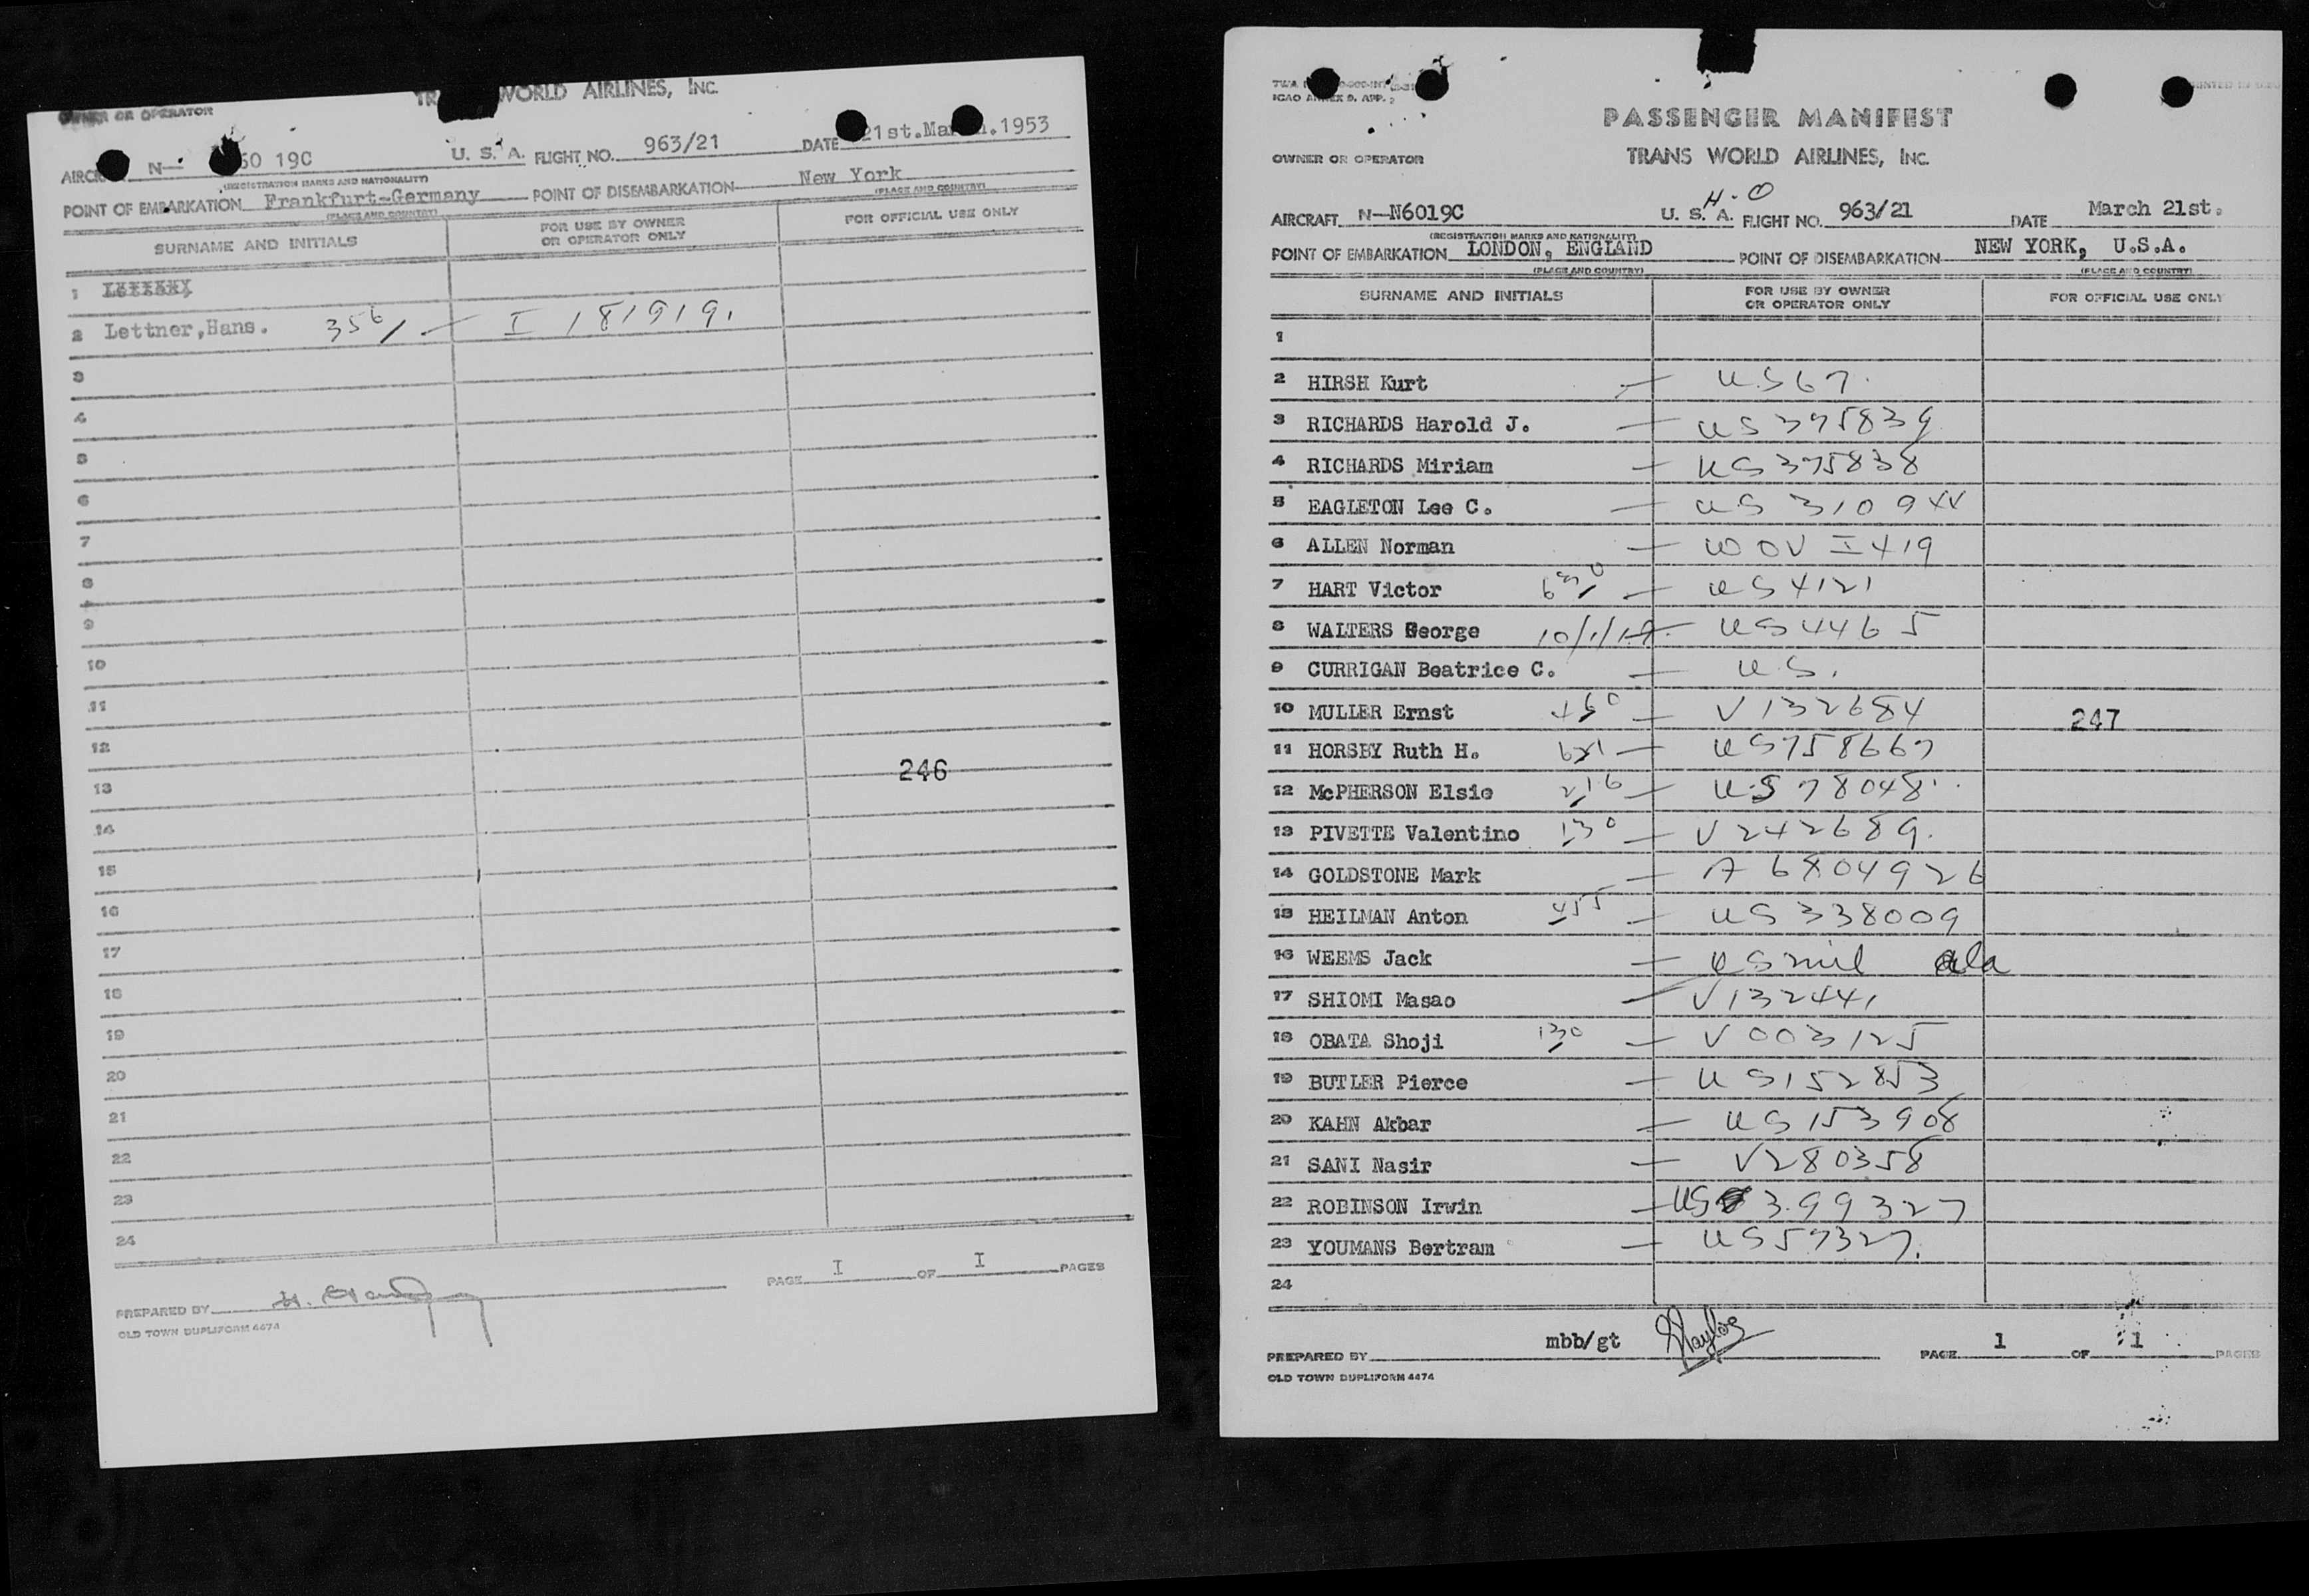 WORLD AIRLINES, INC.
OWNER OR OPERATOR
N- 60 19C U. S. A. FLIGHT NO. 963/21 DATE 21st. .1953
(REGISTRATION MARKS AND NATIONALITY)
POINT OF EMBARKATION Frankfurt-Germany POINT OF DISEMBARKATION New York
(PLACE AND COUNTRY) (PLACE AND COUNTRY)
SURNAME AND INITIALS FOR USE BY OWNER OR OPERATOR ONLY FOR OFFICIAL USE ONLY
1
2 Lettner,Hans. 356/ — I 181919.
3
4
5
6
7
8
9
10
11
12
13 246
14
15
16
17
18
19
20
21
22
23
24
PAGE I OF I PAGES
PREPARED BY
OLD TOWN DUPLIFORM 4474
PASSENGER MANIFEST
OWNER OR OPERATOR TRANS WORLD AIRLINES, INC.
H.O
AIRCRAFT N-N6019C U. S. A. FLIGHT NO. 963/21 DATE March 21st.
(REGISTRATION MARKS AND NATIONALITY)
POINT OF EMBARKATION LONDON, ENGLAND POINT OF DISEMBARKATION NEW YORK, U.S.A.
(PLACE AND COUNTRY) (PLACE AND COUNTRY)
SURNAME AND INITIALS FOR USE BY OWNER OR OPERATOR ONLY FOR OFFICIAL USE ONLY
1
2 HIRSH Kurt — US67.
3 RICHARDS Harold J. — US 375839
4 RICHARDS Miriam — US 375838
5 EAGLETON Lee C. — US 310944
6 ALLEN Norman — WOV I419
7 HART Victor — US4121
8 WALTERS George — US4465
9 CURRIGAN Beatrice C. — US.
10 MULLER Ernst — V132684 247
11 HORSBY Ruth H. — US758667
12 McPHERSON Elsie 216 — US78048
13 PIVETTE Valentino 130 — V242689.
14 GOLDSTONE Mark — A 6804926
15 HEILMAN Anton 455 — US338009
16 WEEMS Jack — US mil ala
17 SHIOMI Masao — V132441
18 OBATA Shoji 130 — V003125
19 BUTLER Pierce — US152853
20 KAHN Akbar — US153908
21 SANI Nasir — V280358
22 ROBINSON Irwin — US 399327
23 YOUMANS Bertram — US57327.
24
PREPARED BY mbb/gt PAGE 1 OF 1 PAGES
OLD TOWN DUPLIFORM 4474